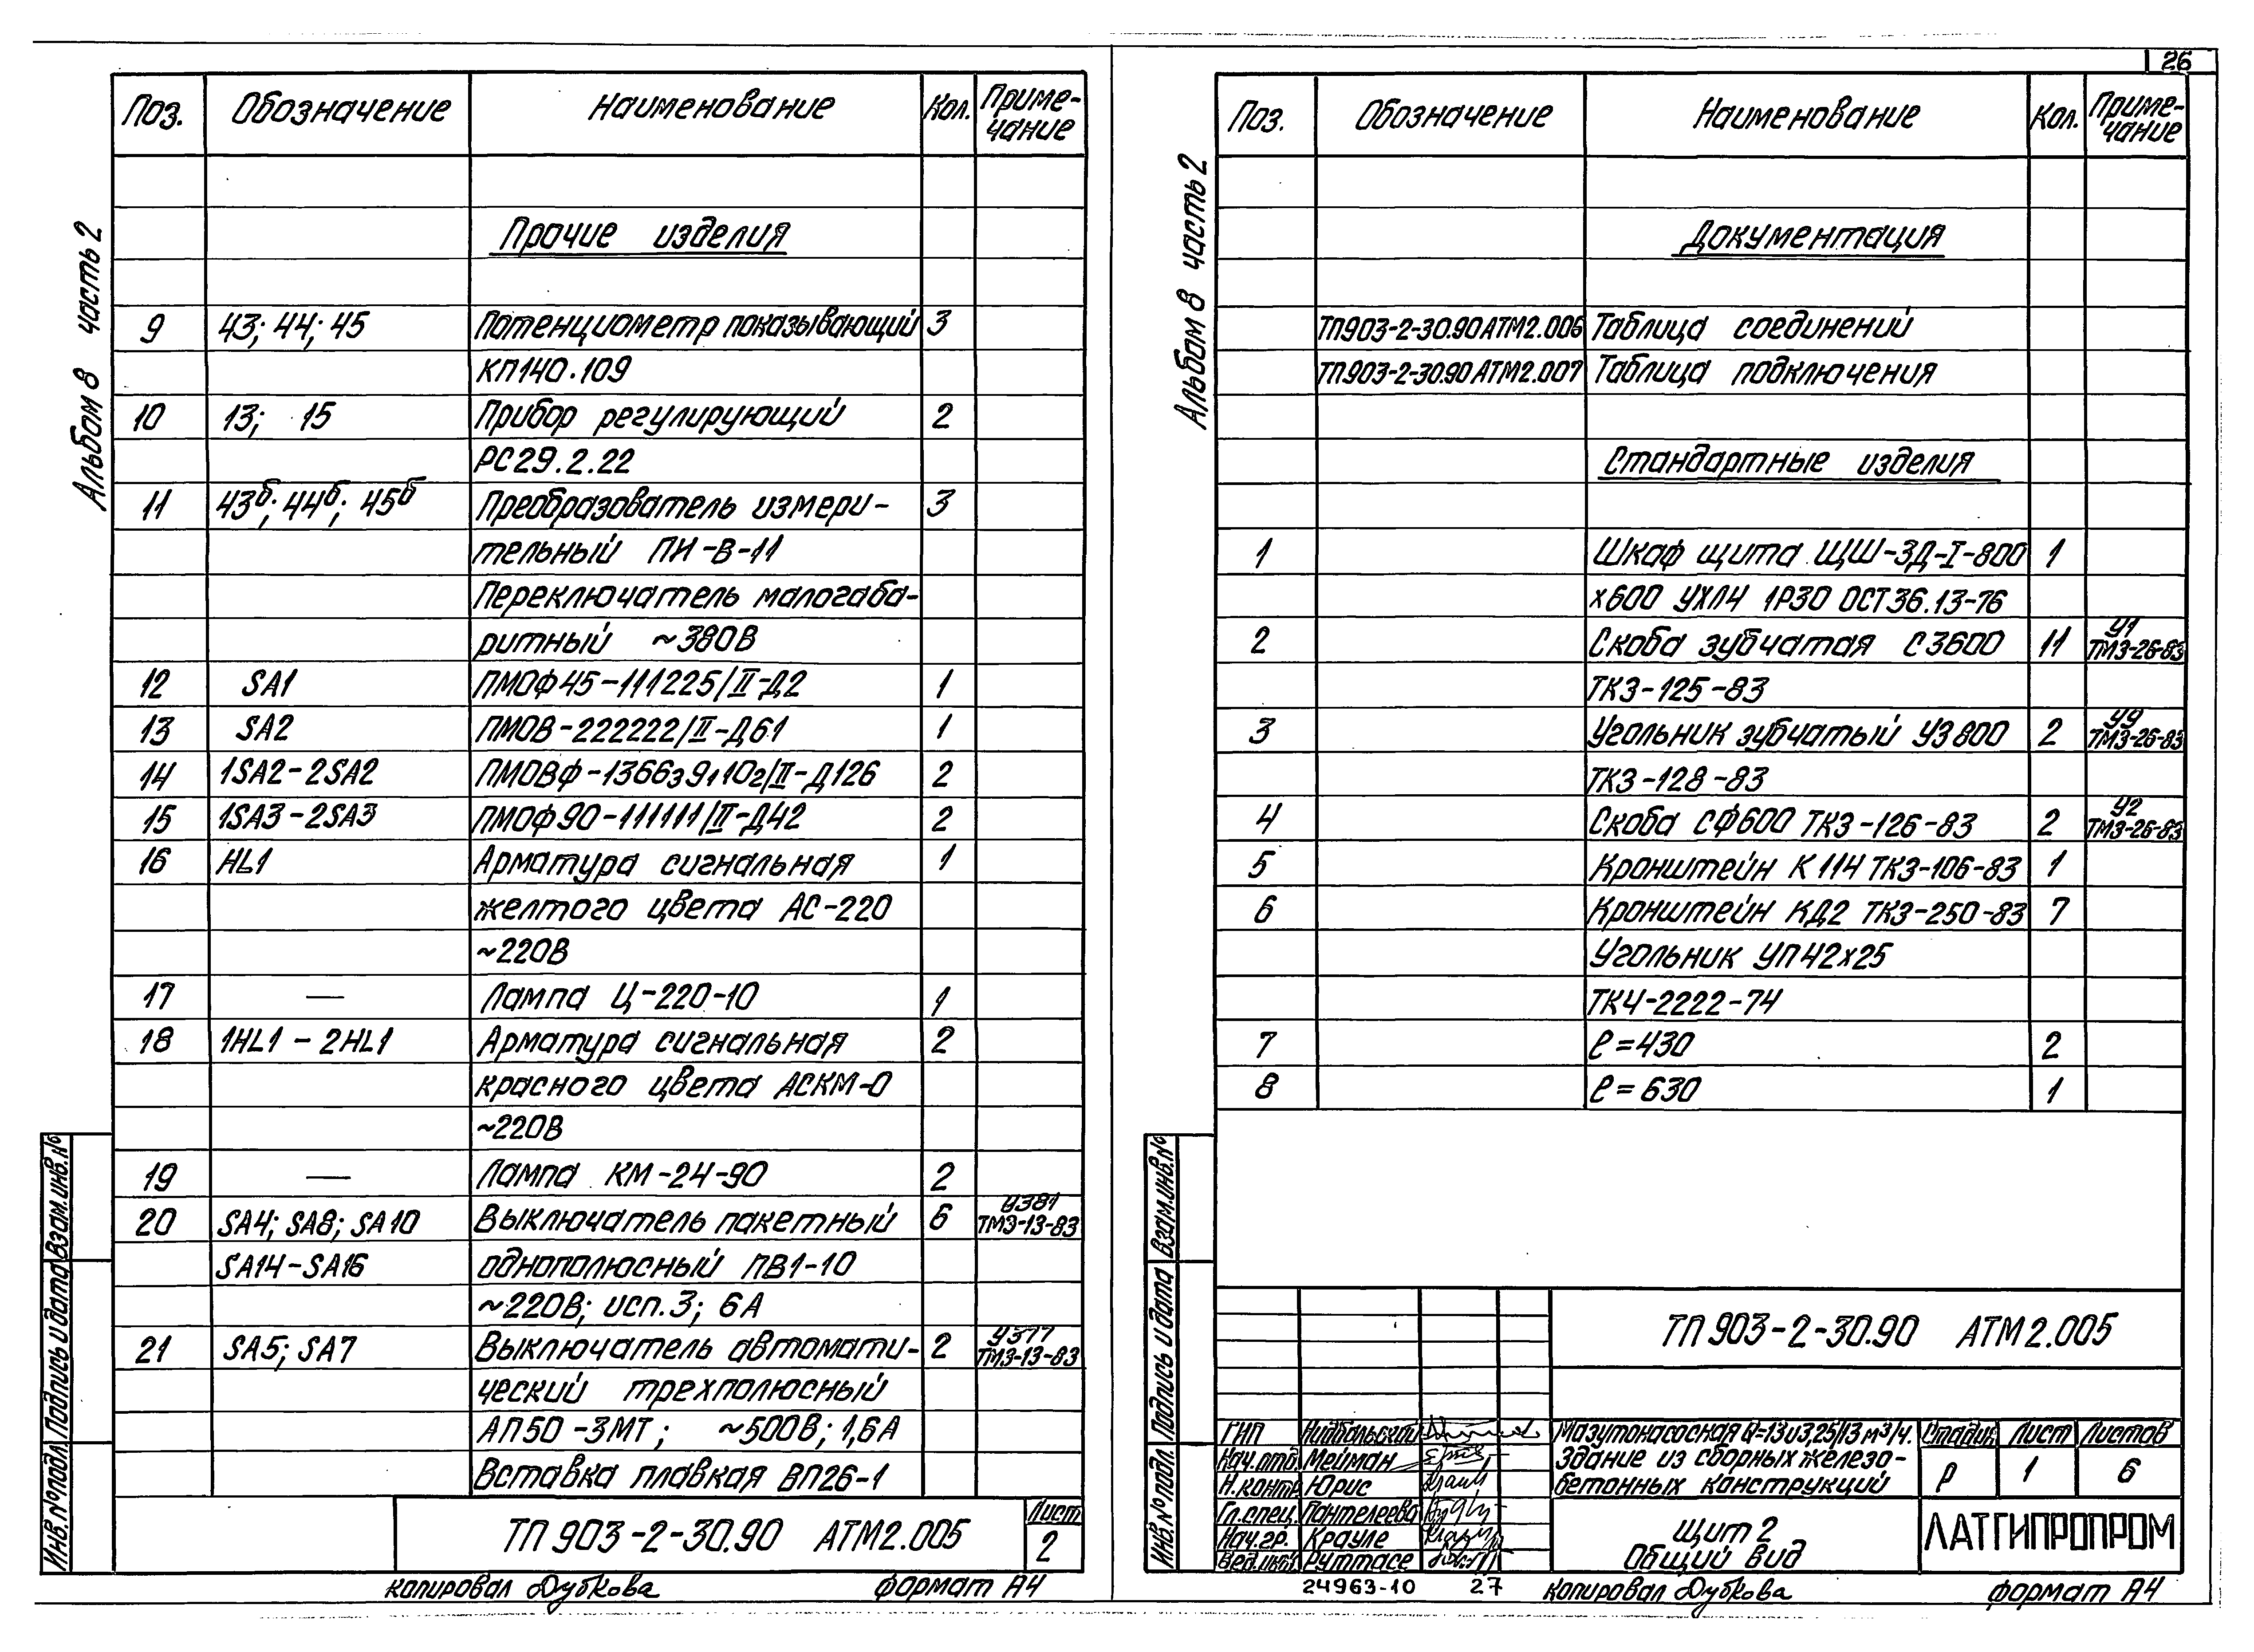 26
Альбом 8 часть 2
Поз. Обозначение Наименование Кол. Приме-
чание
Прочие изделия
9 43; 44; 45 Потенциометр показывающий 3
КП140.109
10 13; 15 Прибор регулирующий 2
РС29.2.22
11 43б; 44б; 45б Преобразователь измери- 3
тельный ПИ-В-11
Переключатель малогаба-
ритный ~380В
12 SA1 ПМОФ45-111225/II-Д2 1
13 SA2 ПМОВ-222222/II-Д61 1
14 1SA2-2SA2 ПМОВФ-1366391102/II-Д126 2
15 1SA3-2SA3 ПМОФ90-111111/II-Д42 2
16 HL1 Арматура сигнальная 1
желтого цвета АС-220
~220В
17 — Лампа Ц-220-10 1
18 1HL1-2HL1 Арматура сигнальная 2
красного цвета АСКМ-0
~220В
19 — Лампа КМ-24-90 2
20 SA4; SA8; SA10 Выключатель пакетный 6 У381
ТМ3-13-83
SA14-SA16 однополюсный ПВ1-10
~220В; исп.3; 6А
21 SA5; SA7 Выключатель автомати- 2 У377
ТМ3-13-83
ческий трехполюсный
АП50-3МТ; ~500В; 1,6А
Вставка плавкая ВП26-1
ТП 903-2-30.90 АТМ2.005
Лист
2
Взам.инв.№
Подпись и дата
Инв.№подл.
копировал Дубкова формат А4
Альбом 8 часть 2
Поз. Обозначение Наименование Кол. Приме-
чание
Документация
ТП903-2-30.90АТМ2.006 Таблица соединений
ТП903-2-30.90АТМ2.007 Таблица подключения
Стандартные изделия
1 Шкаф щита ЩШ-3Д-I-800 1
х600 УХЛ4 1Р30 ОСТ36.13-76
2 Скоба зубчатая С3600 11 У1
ТМ3-26-83
ТК3-125-83
3 Угольник зубчатый У3800 2 У9
ТМ3-26-83
ТК3-128-83
4 Скоба СФ600 ТК3-126-83 2 У2
ТМ3-26-83
5 Кронштейн К114 ТК3-106-83 1
6 Кронштейн КД2 ТК3-250-83 7
Угольник УП42х25
ТК4-2222-74
7 ℓ=430 2
8 ℓ=630 1
Взам.инв.№
Подпись и дата
Инв.№подл.
ТП 903-2-30.90 АТМ2.005
ГИП Нидбальский
Нач.отд. Мейман
Н.контр. Юрис
Гл.спец. Пантелеева
Нач.гр. Крауле
Вед.инж. Руттасе
Мазутонасосная Q=13и3,25/13 м³/ч.
Здание из сборных железо-
бетонных конструкций
Стадия Лист Листов
Р 1 6
Щит 2
Общий вид
ЛАТГИПРОПРОМ
24963-10 27
копировал Дубкова формат А4